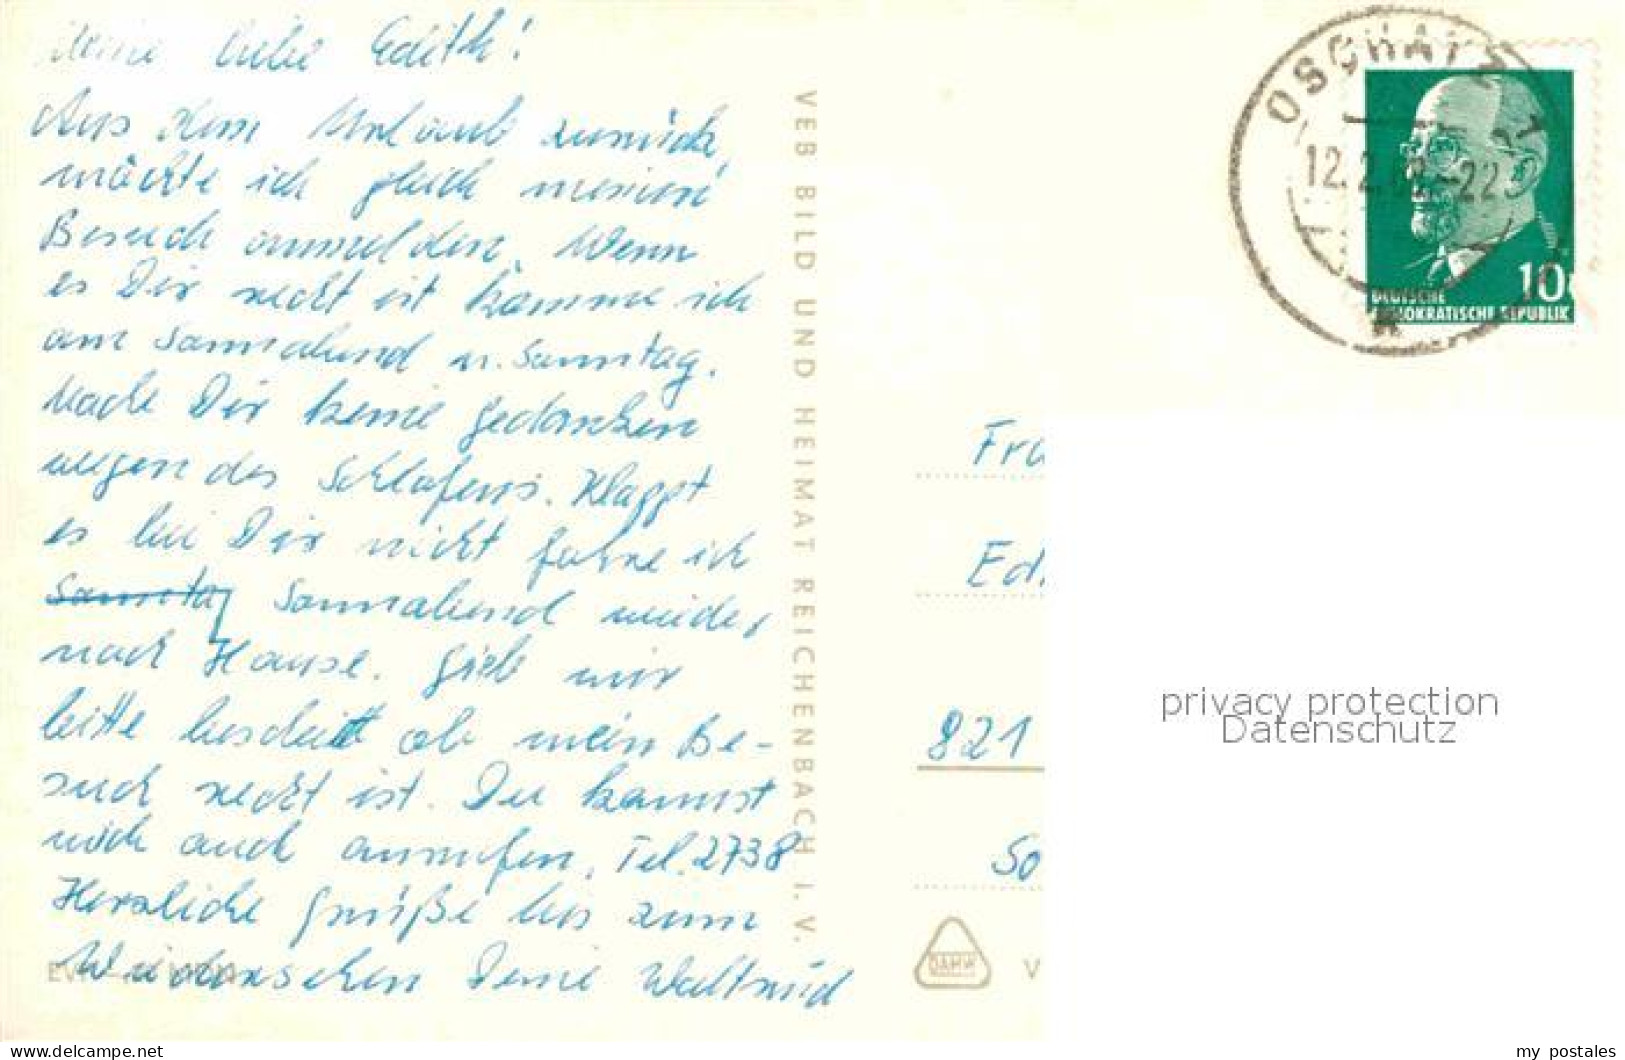 Meine liebe Edith!
Aus dem Urlaub zurück,
möchte ich gleich meinen
Besuch anmelden. Wenn
es Dir recht ist komme ich
am Sonnabend u. Sonntag.
Mach Dir keine Gedanken
wegen des Schlafens. Klappt
es bei Dir nicht fahre ich
Sonntag Sonnabend wieder
nach Hause. Gieb mir
bitte bescheid ob mein Be-
such recht ist. Du kannst
mich auch anrufen. Tel. 2738
Herzliche Grüße bis zum
Wiedersehen Deine Waltraud
VEB BILD UND HEIMAT REICHENBACH I. V.
OSCHATZ 1
12.2. -22
10
DEUTSCHE
DEMOKRATISCHE REPUBLIK
Fra
Ed
821
So
V
privacy protection
Datenschutz
www.delcampe.net
my_postales